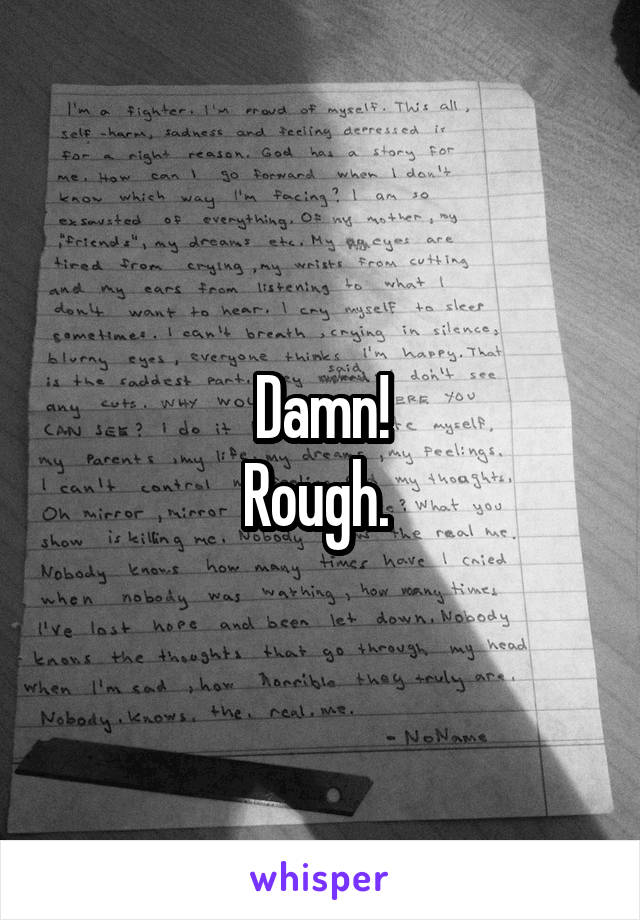 I'm a fighter. I'm proud of myself. This all,
self-harm, sadness and feeling depressed is
for a right reason. God has a story for
me. How can I go forward when I don't
know which way I'm facing? I am so
exsausted of everything. Of my mother, my
"friends", my dreams etc. My eyes are
tired from crying, my wrists from cutting
and my ears from listening to what I
don't want to hear. I cry myself to sleep
sometimes. I can't breath, crying in silence,
blurny eyes, everyone thinks I'm happy. That
is the saddest part. said don't see
any cuts. WHY YOU
Damn!
CAN SEE? I do it myself,
my parents, my life, my dreams, my feelings.
I can't control my thoughts.
Rough.
Oh mirror, mirror ? What you
show is killing me. Nobody the real me.
Nobody knows how many times have I cried
when nobody was wathing, how many times
I've lost hope and been let down. Nobody
knows the thoughts that go through my head
when I'm sad, how horrible they truly are.
Nobody. knows. the. real. me.
- NoName
whisper